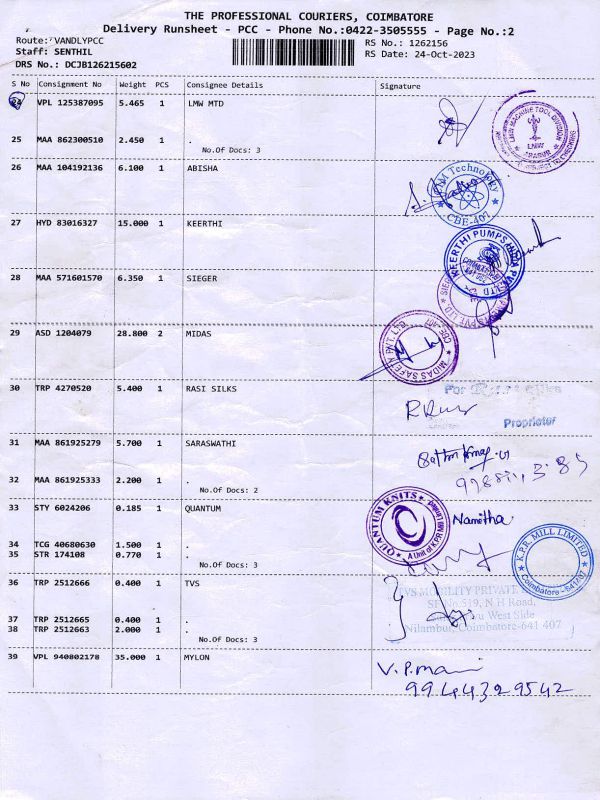 THE PROFESSIONAL COURIERS, COIMBATORE
Delivery Runsheet - PCC - Phone No.:0422-3505555 - Page No.:2
Route: VANDLYPCC RS No.: 1262156
Staff: SENTHIL RS Date: 24-Oct-2023
DRS No.: DCJB126215602
S No Consignment No Weight PCS Consignee Details Signature
24 VPL 125387095 5.465 1 LMW MTD
LMW MACHINE TOOL DIVISION
LMW
25 MAA 862300510 2.450 1 .
No.Of Docs: 3
26 MAA 104192136 6.100 1 ABISHA
Technology
CBE-407
27 HYD 83016327 15.000 1 KEERTHI
KEERTHI PUMPS INDIA PVT LTD
28 MAA 571601570 6.350 1 SIEGER
29 ASD 1204079 28.800 2 MIDAS
MIDAS SAFETY PVT. LTD
CBE-407
30 TRP 4270520 5.400 1 RASI SILKS
For
Proprietor
31 MAA 861925279 5.700 1 SARASWATHI
32 MAA 861925333 2.200 1 .
No.Of Docs: 2
33 STY 6024206 0.185 1 QUANTUM
QUANTUM KNITS
A Unit of K.P.R Mill Limited
Namitha
K.P.R. MILL LIMITED
Coimbatore - 641407
34 TCG 40680630 1.500 1 .
35 STR 174108 0.770 1 .
No.Of Docs: 3
36 TRP 2512666 0.400 1 TVS
TVS MOBILITY PRIVATE
N H Road,
West Side
Nilambur, Coimbatore-641 407
37 TRP 2512665 0.400 1 .
38 TRP 2512663 2.000 1 .
No.Of Docs: 3
39 VPL 940802178 35.000 1 MYLON
V.P.mani
9944329542